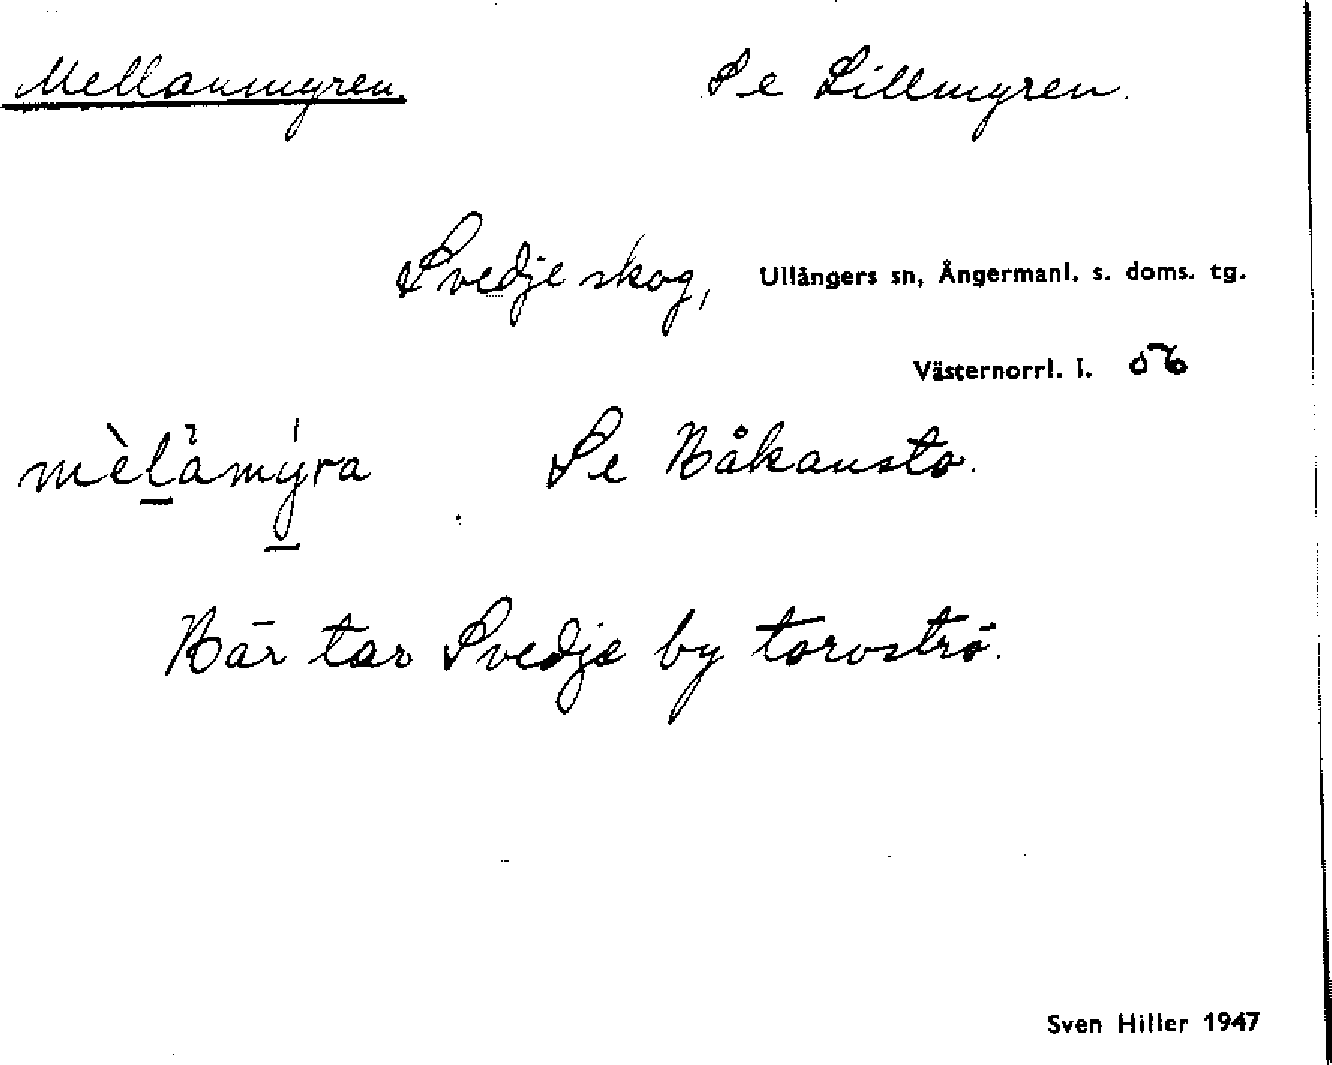 Mellanmyren. Se Lillmyren.
Svedje skog, Ullångers sn, Ångermanl. s. doms. tg.
Västernorrl. l. 56
Se Håkansto.
Här tar Svedje by torvströ.
Sven Hiller 1947